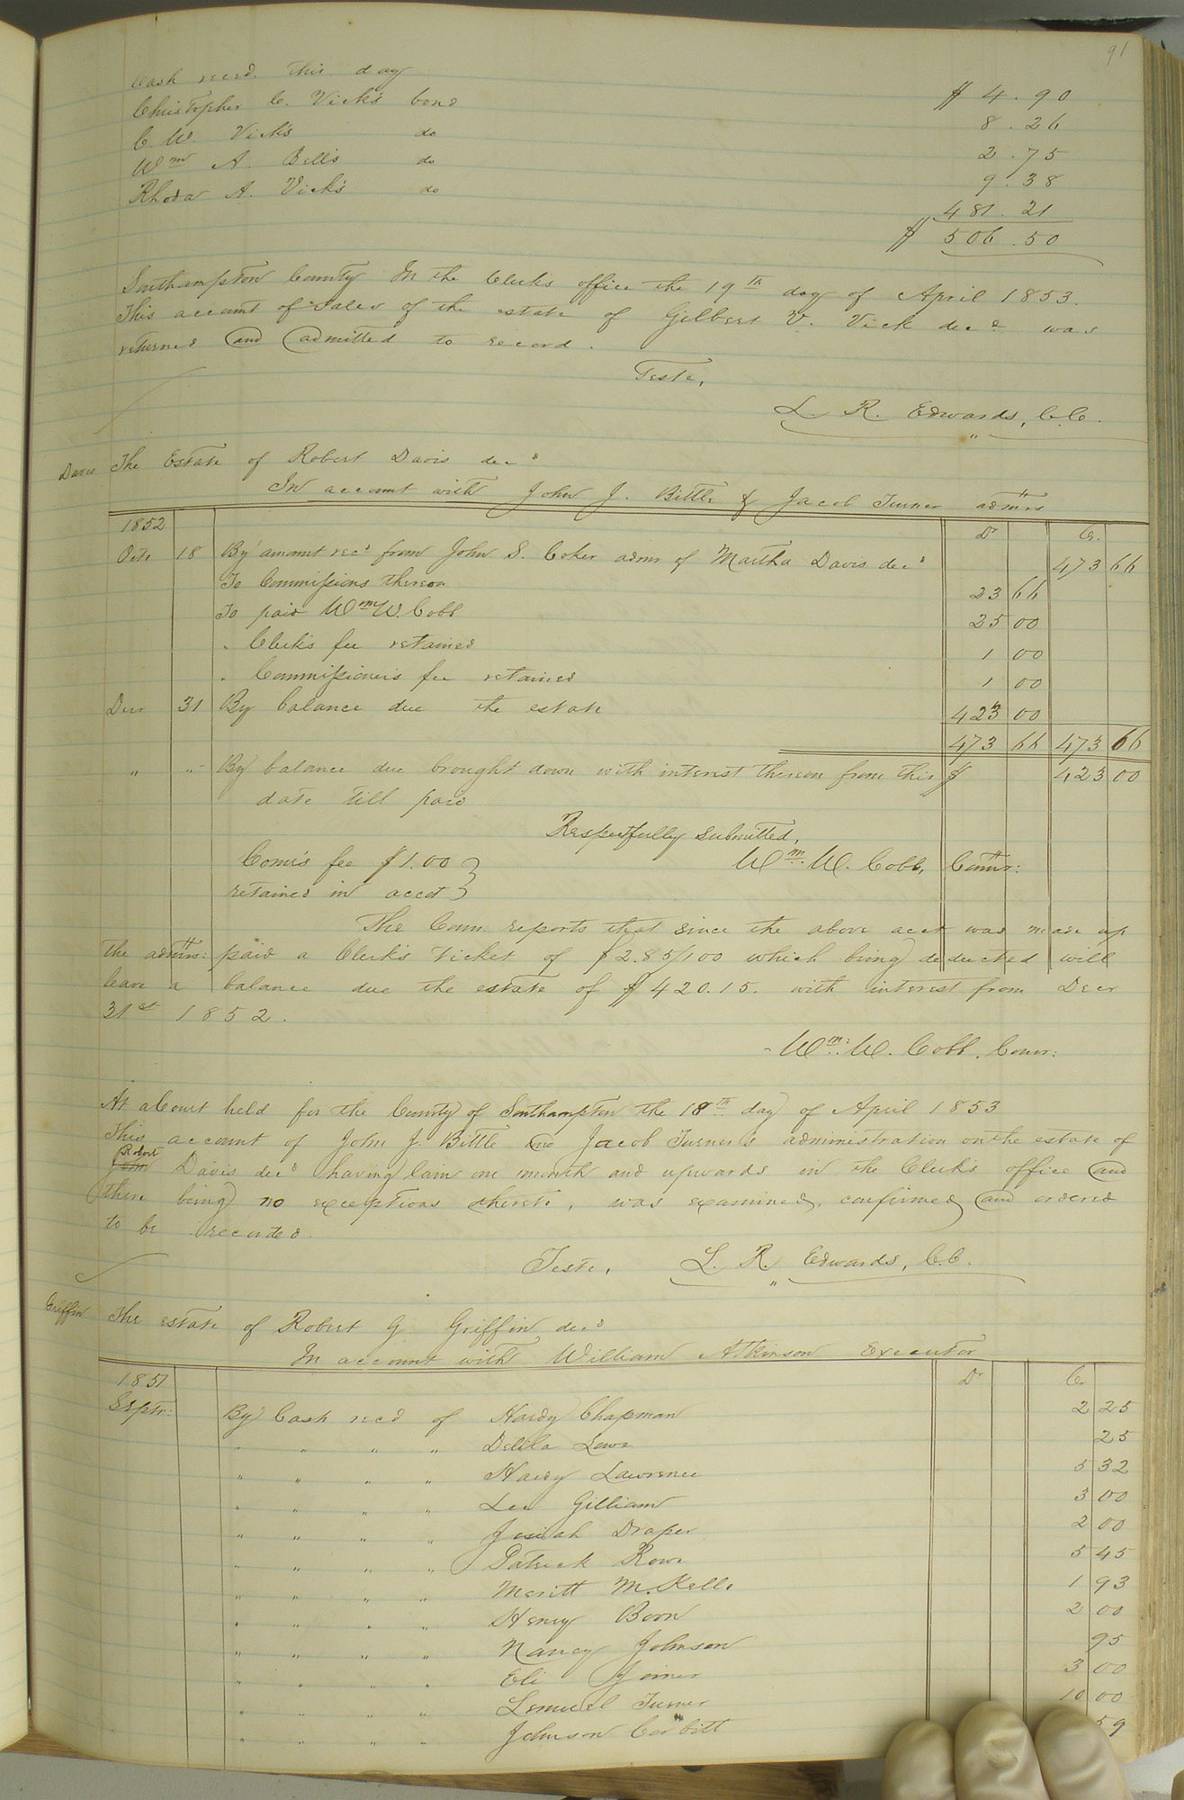 91
Cash recd. this day $ 4.90
Christopher C. Vick's bond 8.26
C. W Vick's do 2.75
Wm A. Bell's do 9.38
Rhoda A. Vick's do 481.21
$ 506.50
Southampton County In the Clerk's office the 19th day of April 1853.
This account of Sales of the estate of Gilbert V. Vick decd was
returned and admitted to record.
Teste,
L. R. Edwards, C.C.
Davis The Estate of Robert Davis decd
In account with John J. Bittle & Jacob Turner admrs
1852 Dr Cr.
Octr 18 By amount recd from John S. Coker admr of Martha Davis decd 473 66
To Commissions thereon 23 66
To paid Wm W. Cobb 25 00
" Clerk's fee retained 1 00
" Commissioner's fee retained 1 00
Decr 31 By balance due the estate 423 00
473 66 473 66
" " By balance due brought down with interest thereon from this $ 423 00
date till paid
Respectfully submitted,
Wm. W. Cobb, Commr:
Comr's fee $1.00 }
retained in acct }
The Comr. reports that since the above acct was made up
the admrs: paid a Clerk's Ticket of $2.85/100 which being deducted will
leave a balance due the estate of $420.15. with interest from Decr
31st 1852.
Wm. W. Cobb. Comr:
At a Court held for the County of Southampton the 18th day of April 1853
This account of John J. Bittle and Jacob Turner's administration on the estate of
Robert
Davis decd having lain one month and upwards in the Clerk's office and
there being no exceptions thereto, was examined, confirmed and ordered
to be recorded.
Teste, L. R. Edwards, C.C.
Griffin The estate of Robert G. Griffin decd
In account with William Atkinson Executor
1851 Dr Cr.
Septr: By Cash recd of Hardy Chapman 2 25
" " " " Delila Lowe 25
" " " " Hardy Lawrence 5 32
" " " " Lee Gilliam 3 00
" " " " Josiah Draper 2 00
" " " " Patrick Rowe 5 45
" " " " Meritt M. Kello 1 93
" " " " Henry Boon 2 00
" " " " Nancy Johnson 95
" " " " Eli Joiner 3 00
" " " " Lemuel Turner 10 00
" " " " Johnson Corbitt 59